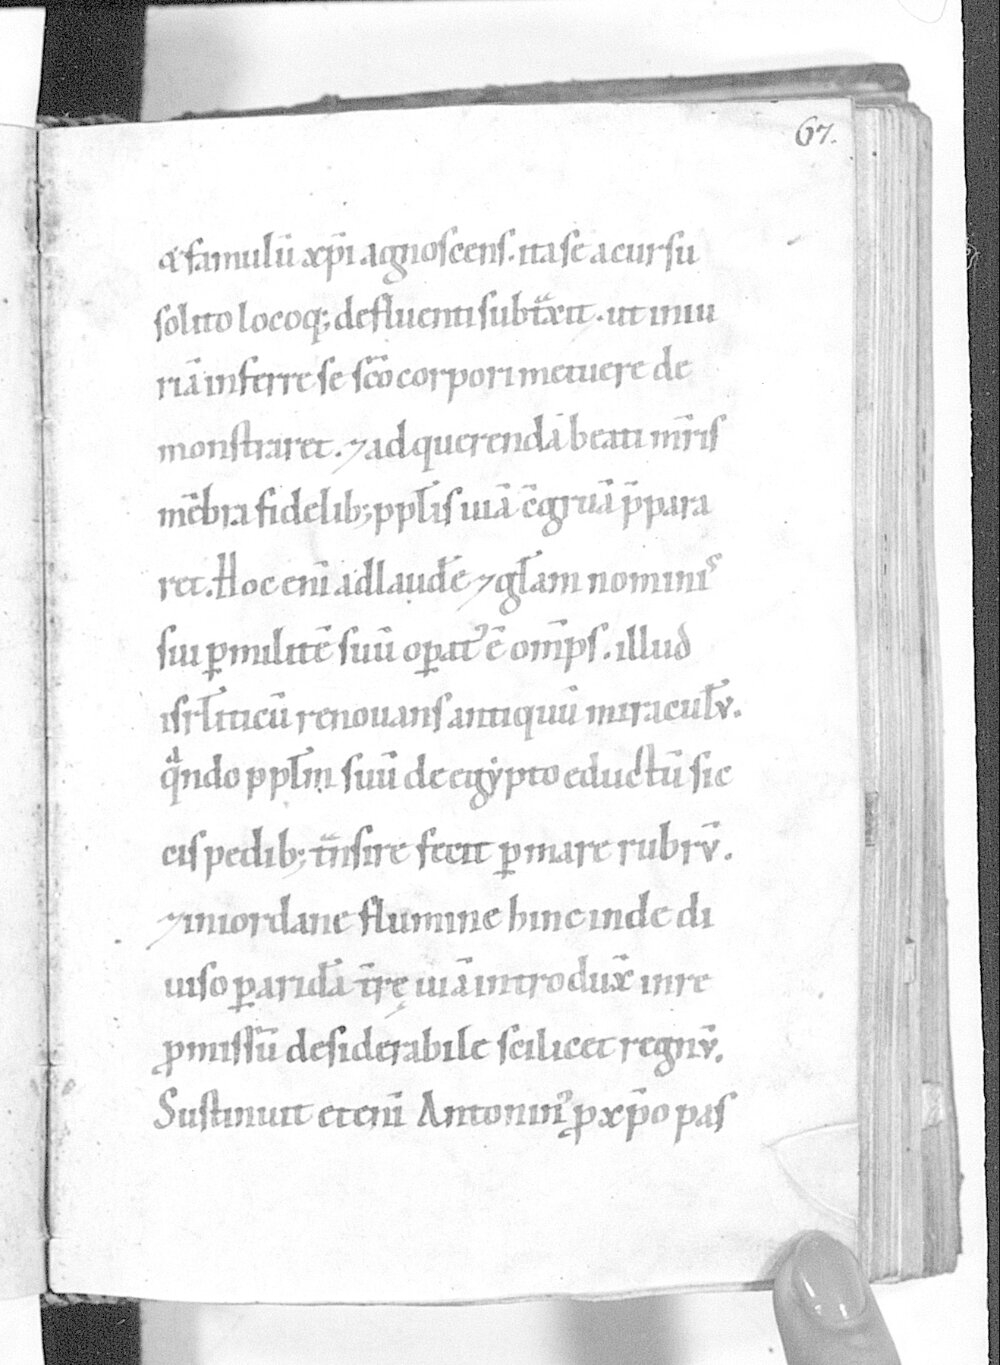 67.
& famulū xp̄i agnoscens. ita se a cursu
solito locoq; defluenti subtͣxit. ut iniu
riā inferre se sc̄o corpori metuere de
monstraret. ⁊ ad querendā beati mr̄is
mēbra fidelib; ppl̄is uiā c̄gruā p̄para
ret. Hoc eni̅ ad laudē ⁊ gl̄am nominis
sui ꝑ militē suū oꝑat᷒ ē om̄ps. illud
isrl̄iticū renouans antiquū miracul̄v.
qͣndo ppl̄m suū de egẏpto eductū sic
cis pedib; tͣnsire fecit ꝑ mare rubrv̄.
⁊ in iordane flumine hinc inde di
uiso ꝑ aridā tr̄rę uiā introdux̄ in re
ꝓmissū desiderabile scilicet regnv̄.
Sustinuit eteni̅ Antonin᷒ ꝓ xp̄o pas